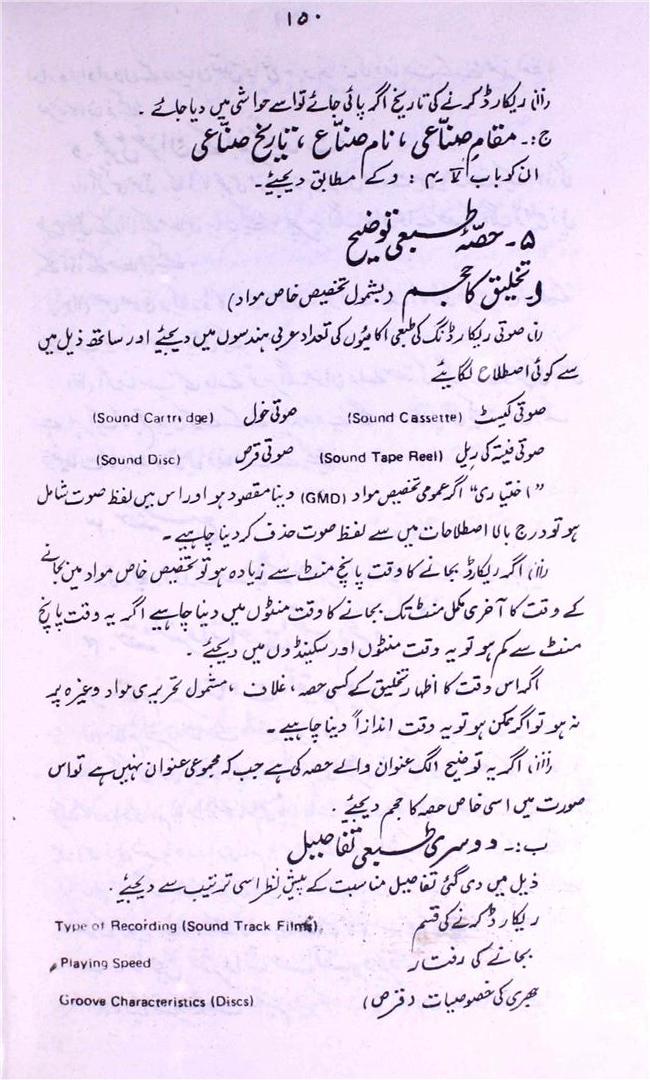 ۱۵۰
(ii) ریکارڈ کرنے کی تاریخ اگر پائی جائے تو اسے حواشی میں دیا جائے ۔
ج :۔ مقام صنّاعی ، نام صنّاع ، تاریخ صنّاعی
ان کو باب کے مطابق دیجیئے ۔
۵ ۔ حصّہ طبیعی توضیح
و تخلیق کا حجم (بشمول تخصیص خاص مواد)
(i) صوتی ریکارڈنگ کی طبعی اکائیوں کی تعداد عربی ہندسوں میں دیجئیے اور ساتھ ذیل میں
سے کوئی اصطلاح لگائیے
صوتی کیسٹ (Sound Cassette) صوتی خول (Sound Cartridge)
صوتی فیتہ کی ریل (Sound Tape Reel) صوتی قرص (Sound Disc)
"اختیاری" اگر عمومی تخصیص مواد (GMD) دینا مقصود ہو اور اس میں لفظ صوت شامل
ہو تو درج بالا اصطلاحات میں سے لفظ صوت حذف کر دینا چاہیے ۔
(ii) اگر ریکارڈ بجانے کا وقت پانچ منٹ سے زیادہ ہو تو تخصیص خاص مواد میں بجانے
کے وقت کا آخری مکمل منٹ تک بجانے کا وقت منٹوں میں دینا چاہیے اگر یہ وقت پانچ
منٹ سے کم ہو تو یہ وقت منٹوں اور سکینڈوں میں دیجئے ۔
اگر اس وقت کا اظہار تخلیق کے کسی حصہ ، غلاف ، مشمول تحریری مواد وغیرہ پر
نہ ہو تو اگر ممکن ہو تو یہ وقت اندازاً دینا چاہیے ۔
(iii) اگر یہ توضیح الگ عنوان والے حصہ کی ہے جب کہ مجموعی عنوان نہیں ہے تو اس
صورت میں اسی خاص حصہ کا حجم دیجئے :
ب :۔ دوسری طبیعی تفاصیل
ذیل میں دی گئی تفاصیل مناسبت کے پیش نظر اسی ترتیب سے دیجیئے .
ریکارڈ کرنے کی قسم Type of Recording (Sound Track Films),
بجانے کی رفتار Playing Speed
جھری کی خصوصیات (قرص) Groove Characteristics (Discs)